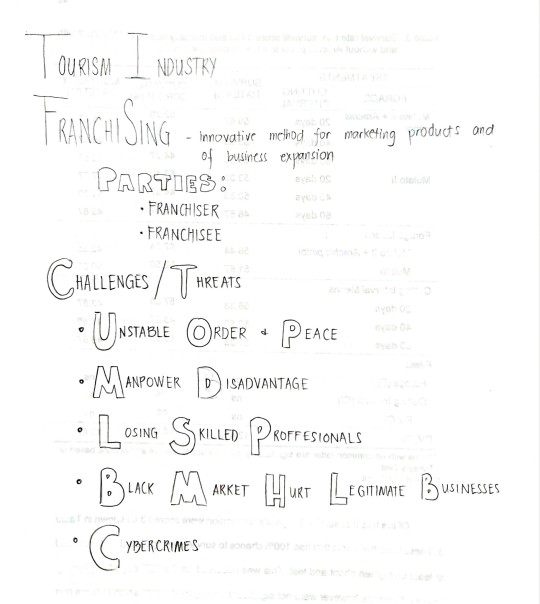 TOURISM INDUSTRY
FRANCHISING - innovative method for marketing products and
of business expansion
PARTIES:
• FRANCHISER
• FRANCHISEE
CHALLENGES / THREATS
• UNSTABLE ORDER & PEACE
• MANPOWER DISADVANTAGE
• LOSING SKILLED PROFFESIONALS
• BLACK MARKET HURT LEGITIMATE BUSINESSES
• CYBERCRIMES